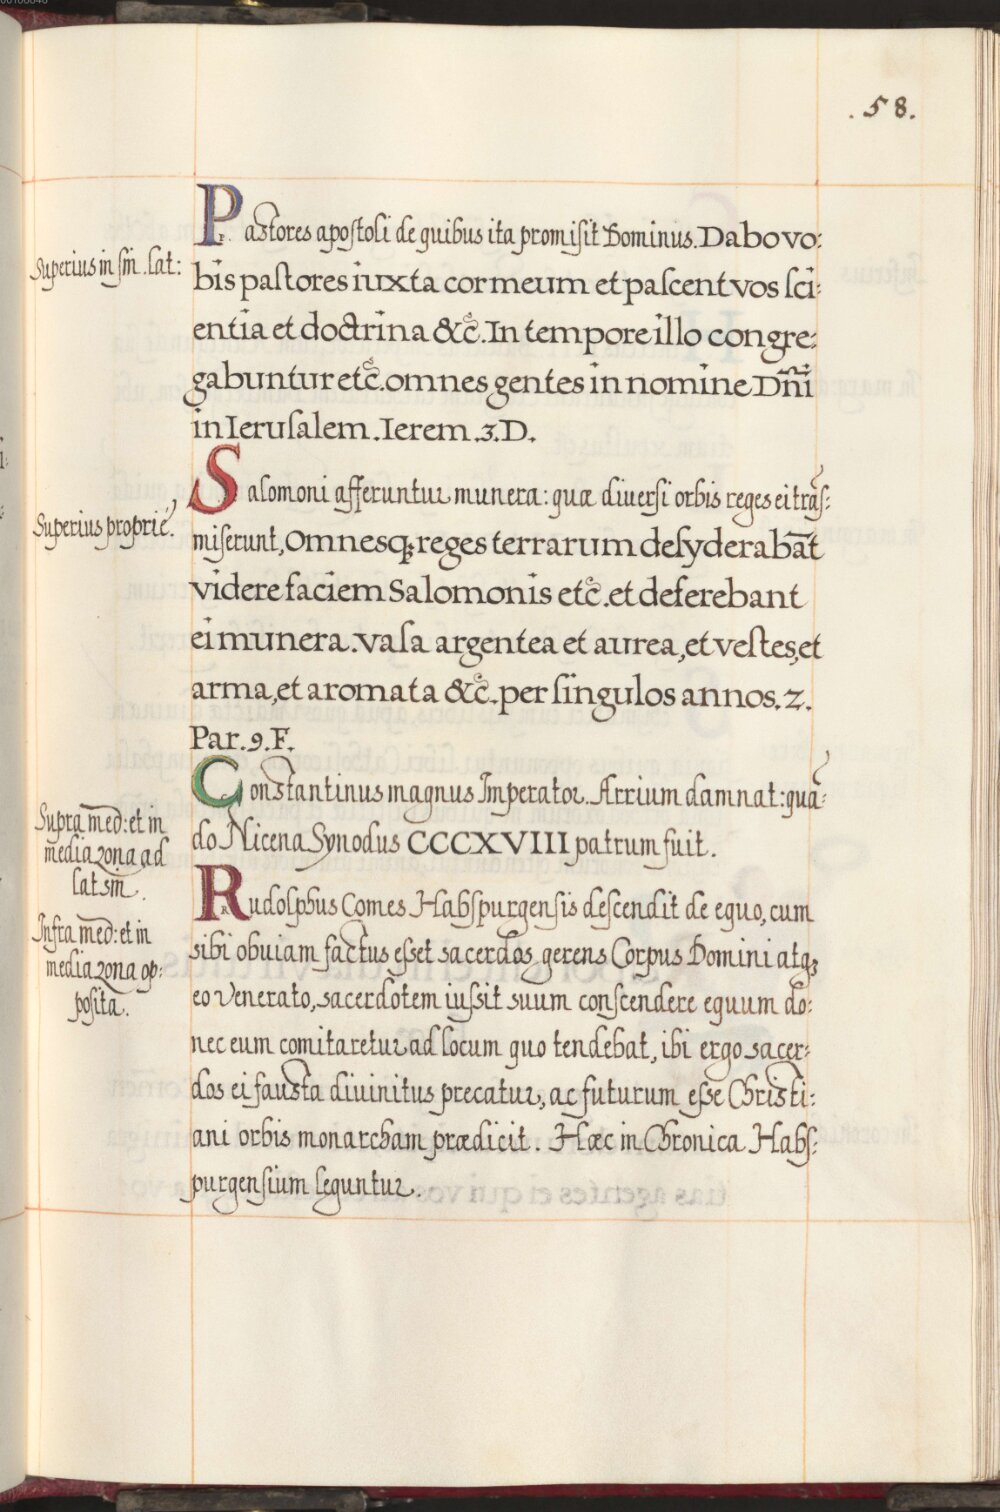 .58.
Superius in sin̄. lat:
Pastores apostoli de quibus ita promisit Dominus. Dabo vo:
bis pastores iuxta cor meum et pascent vos sci:
entia et doctrina &c̊. In tempore illo congre:
gabuntur etc̊. omnes gentes in nomine Dn̄i
in Ierusalem. Ierem. 3. D.
Superius proprié.
Salomoni afferuntur munera: quæ diversi orbis reges ei trās:
miserunt, Omnesq; reges terrarum desyderabāt
videre faciem Salomonis etc̊. et deferebant
ei munera. vasa argentea et aurea, et vestes, et
arma, et aromata &c̊. per singulos annos. 2.
Par. 9. F.
Supra med: et in
media zona ad
lat sin̄.
Constantinus magnus Imperator. Arrium damnat: quā:
do Nicena Synodus CCCXVIII patrum fuit.
Infra med: et in
media zona op:
posita.
Rudolphus Comes Habspurgensis descendit de equo, cum
sibi obuiam factus esset sacerdos gerens Corpus Domini atq;
eo venerato, sacerdotem iussit suum conscendere equum do:
nec eum comitaretur ad locum quo tendebat, ibi ergo sacer:
dos ei fausta divinitus precatur, ac futurum esse Christi:
ani orbis monarcham prædicit. Hæc in Chronica Habs:
purgensium leguntur.